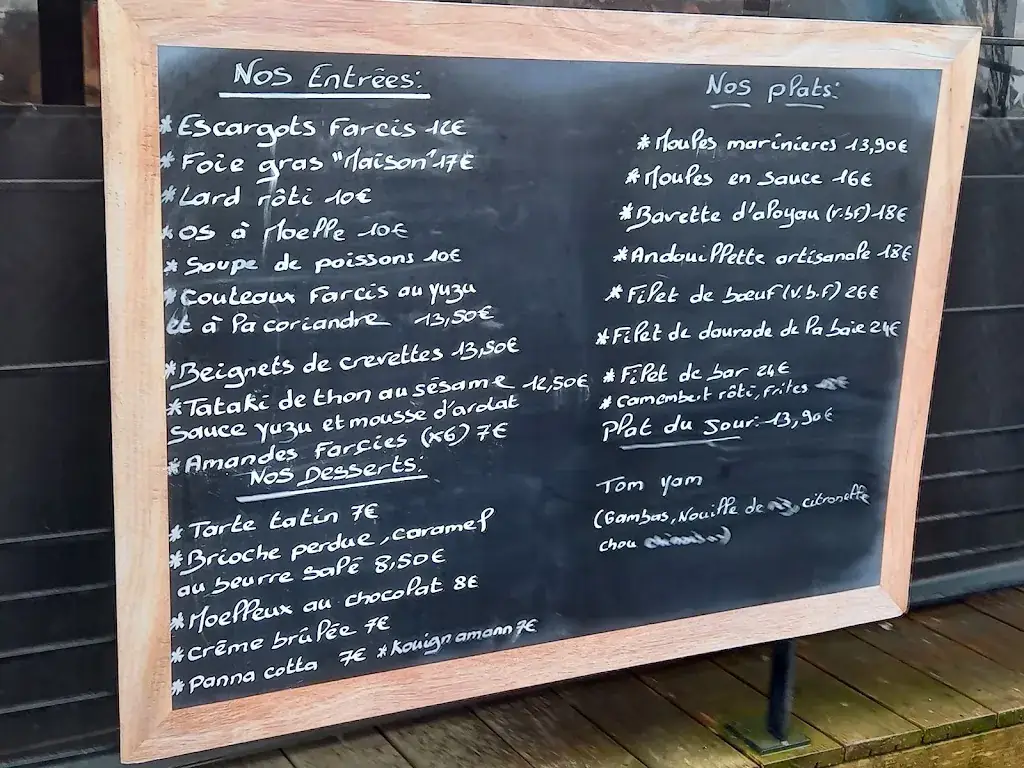 Nos Entrées:
* Escargots Farcis 12€
* Foie gras "Maison" 17€
* Lard rôti 10€
* os à Moelle 10€
* Soupe de poissons 10€
* Couteaux Farcis au yuzu
et à la coriandre 13,50€
* Beignets de crevettes 13,50€
* Tataki de thon au sésame 12,50€
sauce yuzu et mousse d'ardat
* Amandes Farcies (x6) 7€
Nos Desserts:
* Tarte tatin 7€
* Brioche perdue, caramel
au beurre salé 8,50€
* Moelleux au chocolat 8€
* crême brûlée 7€
* Panna cotta 7€ * Kouign amann 7€
Nos plats:
* Moules marinieres 13,90€
* Moules en sauce 16€
* Bavette d'aloyau (v.b.f) 18€
* Andouillette artisanale 18€
* Filet de bœuf (v.b.f) 26€
* Filet de daurade de la baie 24€
* Filet de bar 24€
* Camembert rôti, frites
Plat du Jour: 13,90€
Tom yam
(Gambas, Nouille de , citronelle
chou )